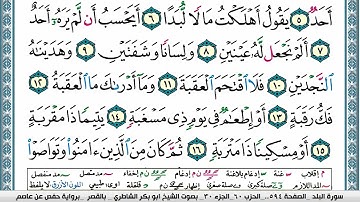 أَحَدٌ ٥ يَقُولُ أَهْلَكْتُ مَالًا لُّبَدًا ٦ أَيَحْسَبُ أَن لَّمْ يَرَهُۥٓ أَحَدٌ
٧ أَلَمْ نَجْعَل لَّهُۥ عَيْنَيْنِ ٨ وَلِسَانًا وَشَفَتَيْنِ ٩ وَهَدَيْنَٰهُ
ٱلنَّجْدَيْنِ ١٠ فَلَا ٱقْتَحَمَ ٱلْعَقَبَةَ ١١ وَمَآ أَدْرَىٰكَ مَا ٱلْعَقَبَةُ ١٢
فَكُّ رَقَبَةٍ ١٣ أَوْ إِطْعَٰمٌ فِى يَوْمٍ ذِى مَسْغَبَةٍ ١٤ يَتِيمًا ذَا مَقْرَبَةٍ
١٥ أَوْ مِسْكِينًا ذَا مَتْرَبَةٍ ١٦ ثُمَّ كَانَ مِنَ ٱلَّذِينَ ءَامَنُوا۟ وَتَوَاصَوْا۟
سورة البلد - الصفحة ٥٩٤ - الحزب ٦٠ - الجزء ٣٠ - بصوت الشيخ ابو بكر الشاطري - بالقمر - برواية حفص عن عاصم